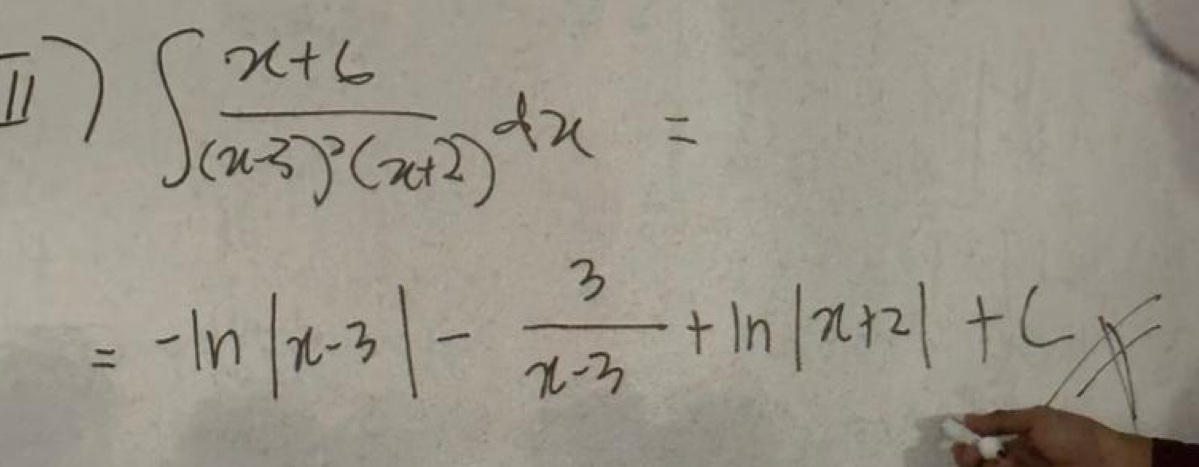 II) ∫ x+6 / (x-3)²(x+2) dx =
= -ln|x-3| - 3/(x-3) + ln|x+2| + C